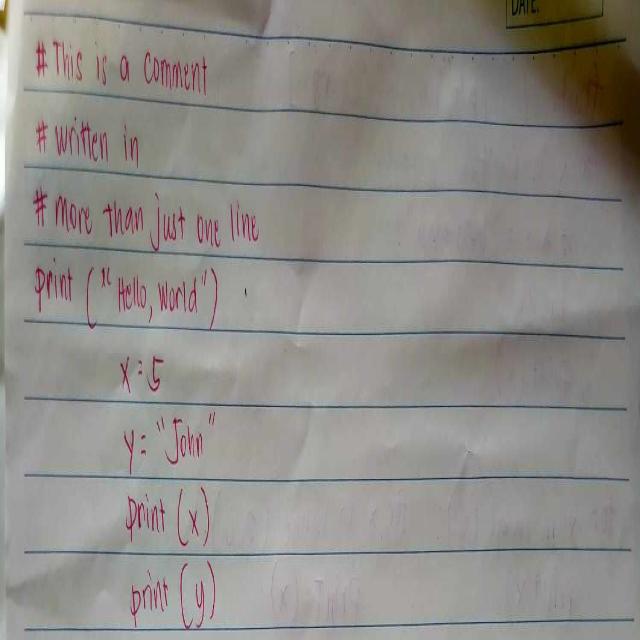 DATE:
#This is a comment
# written in
# more than just one line
print ("Hello, World")
x=5
y="John"
print (x)
print (y)